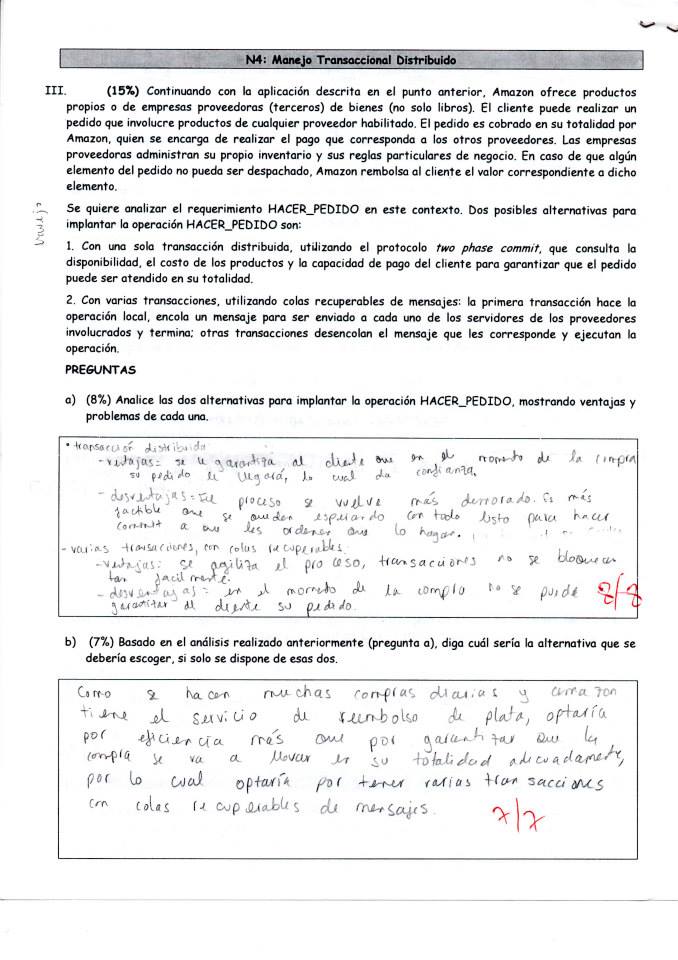 N4: Manejo Transaccional Distribuido
III. (15%) Continuando con la aplicación descrita en el punto anterior, Amazon ofrece productos
propios o de empresas proveedoras (terceros) de bienes (no solo libros). El cliente puede realizar un
pedido que involucre productos de cualquier proveedor habilitado. El pedido es cobrado en su totalidad por
Amazon, quien se encarga de realizar el pago que corresponda a los otros proveedores. Las empresas
proveedoras administran su propio inventario y sus reglas particulares de negocio. En caso de que algún
elemento del pedido no pueda ser despachado, Amazon rembolsa al cliente el valor correspondiente a dicho
elemento.
Se quiere analizar el requerimiento HACER_PEDIDO en este contexto. Dos posibles alternativas para
implantar la operación HACER_PEDIDO son:
1. Con una sola transacción distribuida, utilizando el protocolo two phase commit, que consulta la
disponibilidad, el costo de los productos y la capacidad de pago del cliente para garantizar que el pedido
puede ser atendido en su totalidad.
2. Con varias transacciones, utilizando colas recuperables de mensajes: la primera transacción hace la
operación local, encola un mensaje para ser enviado a cada uno de los servidores de los proveedores
involucrados y termina; otras transacciones desencolan el mensaje que les corresponde y ejecutan la
operación.
PREGUNTAS
a) (8%) Analice las dos alternativas para implantar la operación HACER_PEDIDO, mostrando ventajas y
problemas de cada una.
• transacción distribuida
- ventajas= se le garantiza al cliente que en el momento de la compra
su pedido le llegará, lo cual da confianza.
- desventajas= El proceso se vuelve más demorado. Es más
factible que se queden esperando con todo listo para hacer
commit a que les ordenen que lo hagan.
- varias transacciones, con colas recuperables.
- ventajas: se agiliza el proceso, transacciones no se bloquean
tan facilmente.
- desventajas= en el momento de la compra no se puede
garantizar al cliente su pedido.
8/8
b) (7%) Basado en el análisis realizado anteriormente (pregunta a), diga cuál sería la alternativa que se
debería escoger, si solo se dispone de esas dos.
Como se hacen muchas compras diarias y amazon
tiene el servicio de reembolso de plata, optaría
por eficiencia más que por garantizar que la
compra se va a llevar en su totalidad adecuadamente,
por lo cual optaría por tener varias transacciones
con colas recuperables de mensajes.
7/7